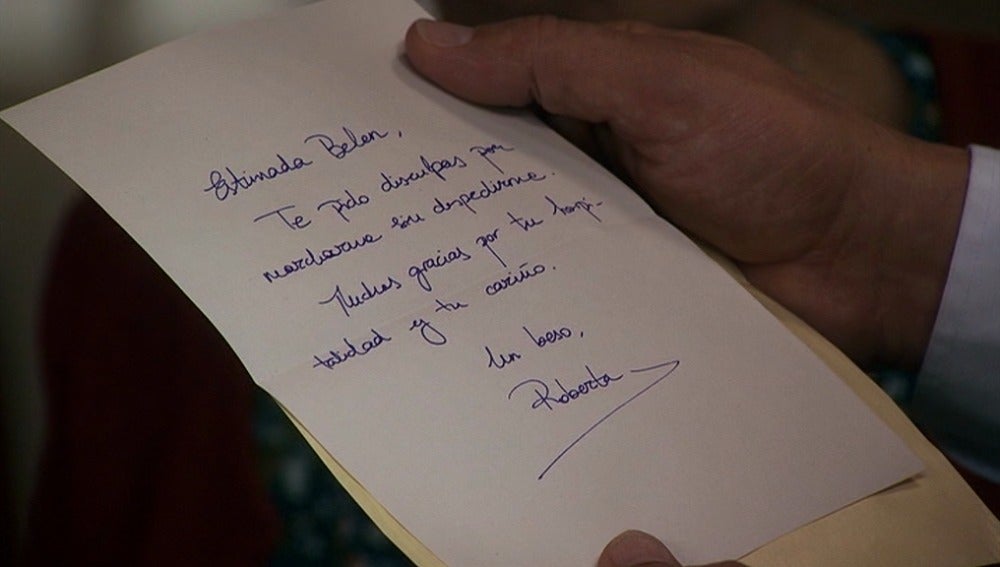 Estimada Belen,
Te pido disculpas por
marcharme sin despedirme.
Muchas gracias por tu hospi-
talidad y tu cariño.
Un beso,
Roberta